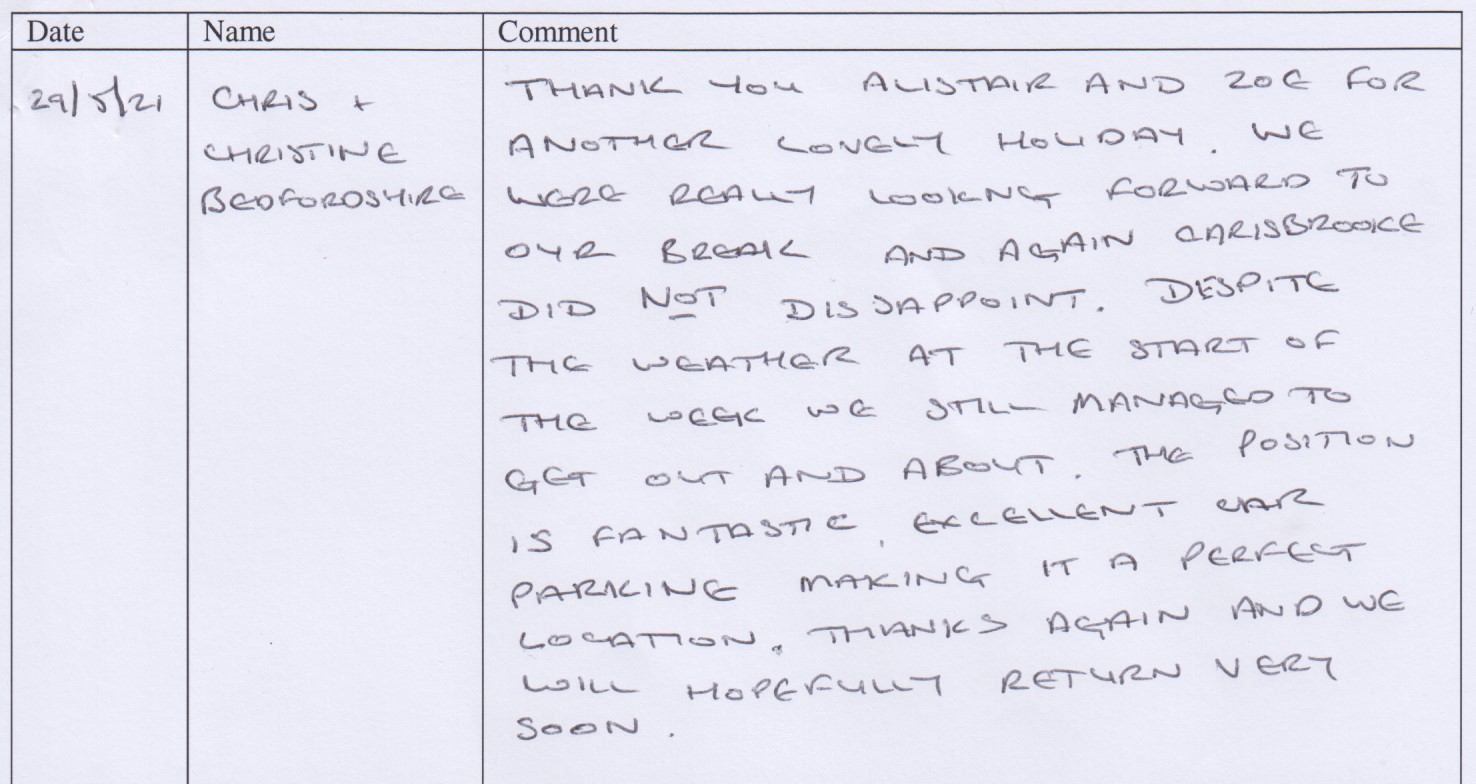 Date Name Comment
29/5/21 CHRIS + THANK YOU ALISTAIR AND ZOE FOR
CHRISTINE ANOTHER LOVELY HOLIDAY. WE
BEDFORDSHIRE WERE REALLY LOOKING FORWARD TO
OUR BREAK AND AGAIN CARISBROOKE
DID NOT DISSAPPOINT. DESPITE
THE WEATHER AT THE START OF
THE WEEK WE STILL MANAGED TO
GET OUT AND ABOUT. THE POSITION
IS FANTASTIC, EXCELLENT CAR
PARKING MAKING IT A PERFECT
LOCATION. THANKS AGAIN AND WE
WILL HOPEFULLY RETURN VERY
SOON.